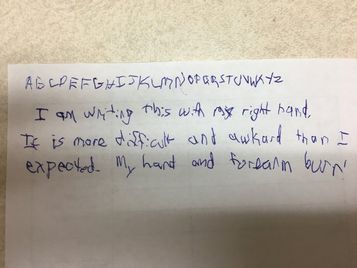 ABCDEFGHIJKLMNOPQRSTUVWXYZ
I am writing this with my right hand.
It is more difficult and awkard than I
expected. My hand and forearm burn!